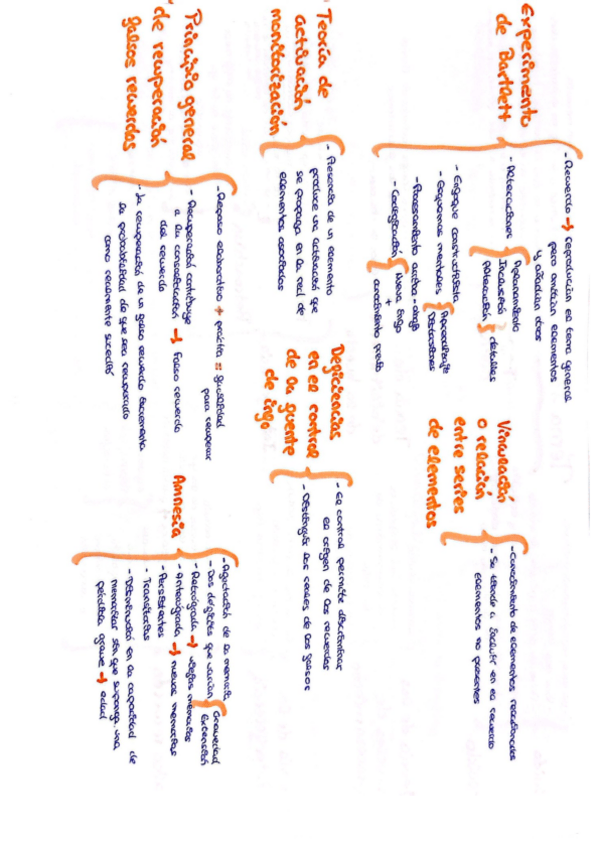 Experimento
de Bartlett
- Recuerdo → reproducían el tema general
pero omitían elementos
y añadían otros
- Alteraciones
Aplanamiento
Inclusión
Alteración
detalles
- Enfoque constructivista
- Esquemas mentales
Aprendizaje
Distorsiones
- Procesamiento arriba-abajo
- Codificación
Nueva info
+
conocimiento previo
Vinculación
o relación
entre series
de elementos
- Conocimiento de elementos relacionados
- Se tiende a incluir en el recuerdo
elementos no presentes
Teoría de
activación
monitorización
- Presencia de un elemento
produce una activación que
se propaga en la red de
elementos asociados
Deficiencias
en el control
de la fuente
de info
- El control permite discriminar
el origen de los recuerdos
- Distinguir los reales de los falsos
Principio general
de recuperación
falsos recuerdos
- Repaso elaborativo + práctica = facilidad
para recuperar
- Recuperación contribuye
a la consolidación → falso recuerdo
del recuerdo
- La recuperación de un falso recuerdo incrementa
la probabilidad de que sea recuperado
como realmente sucedió
Amnesia
- Afectación de la memoria
- Dos déficits que varían
Gravedad
Extensión
- Retrógrada → viejas memorias
- Anterógrada → nuevas memorias
- Persistentes
- Transitorias
- Disminución en la capacidad de
memorizar sin que suponga una
pérdida grave → edad